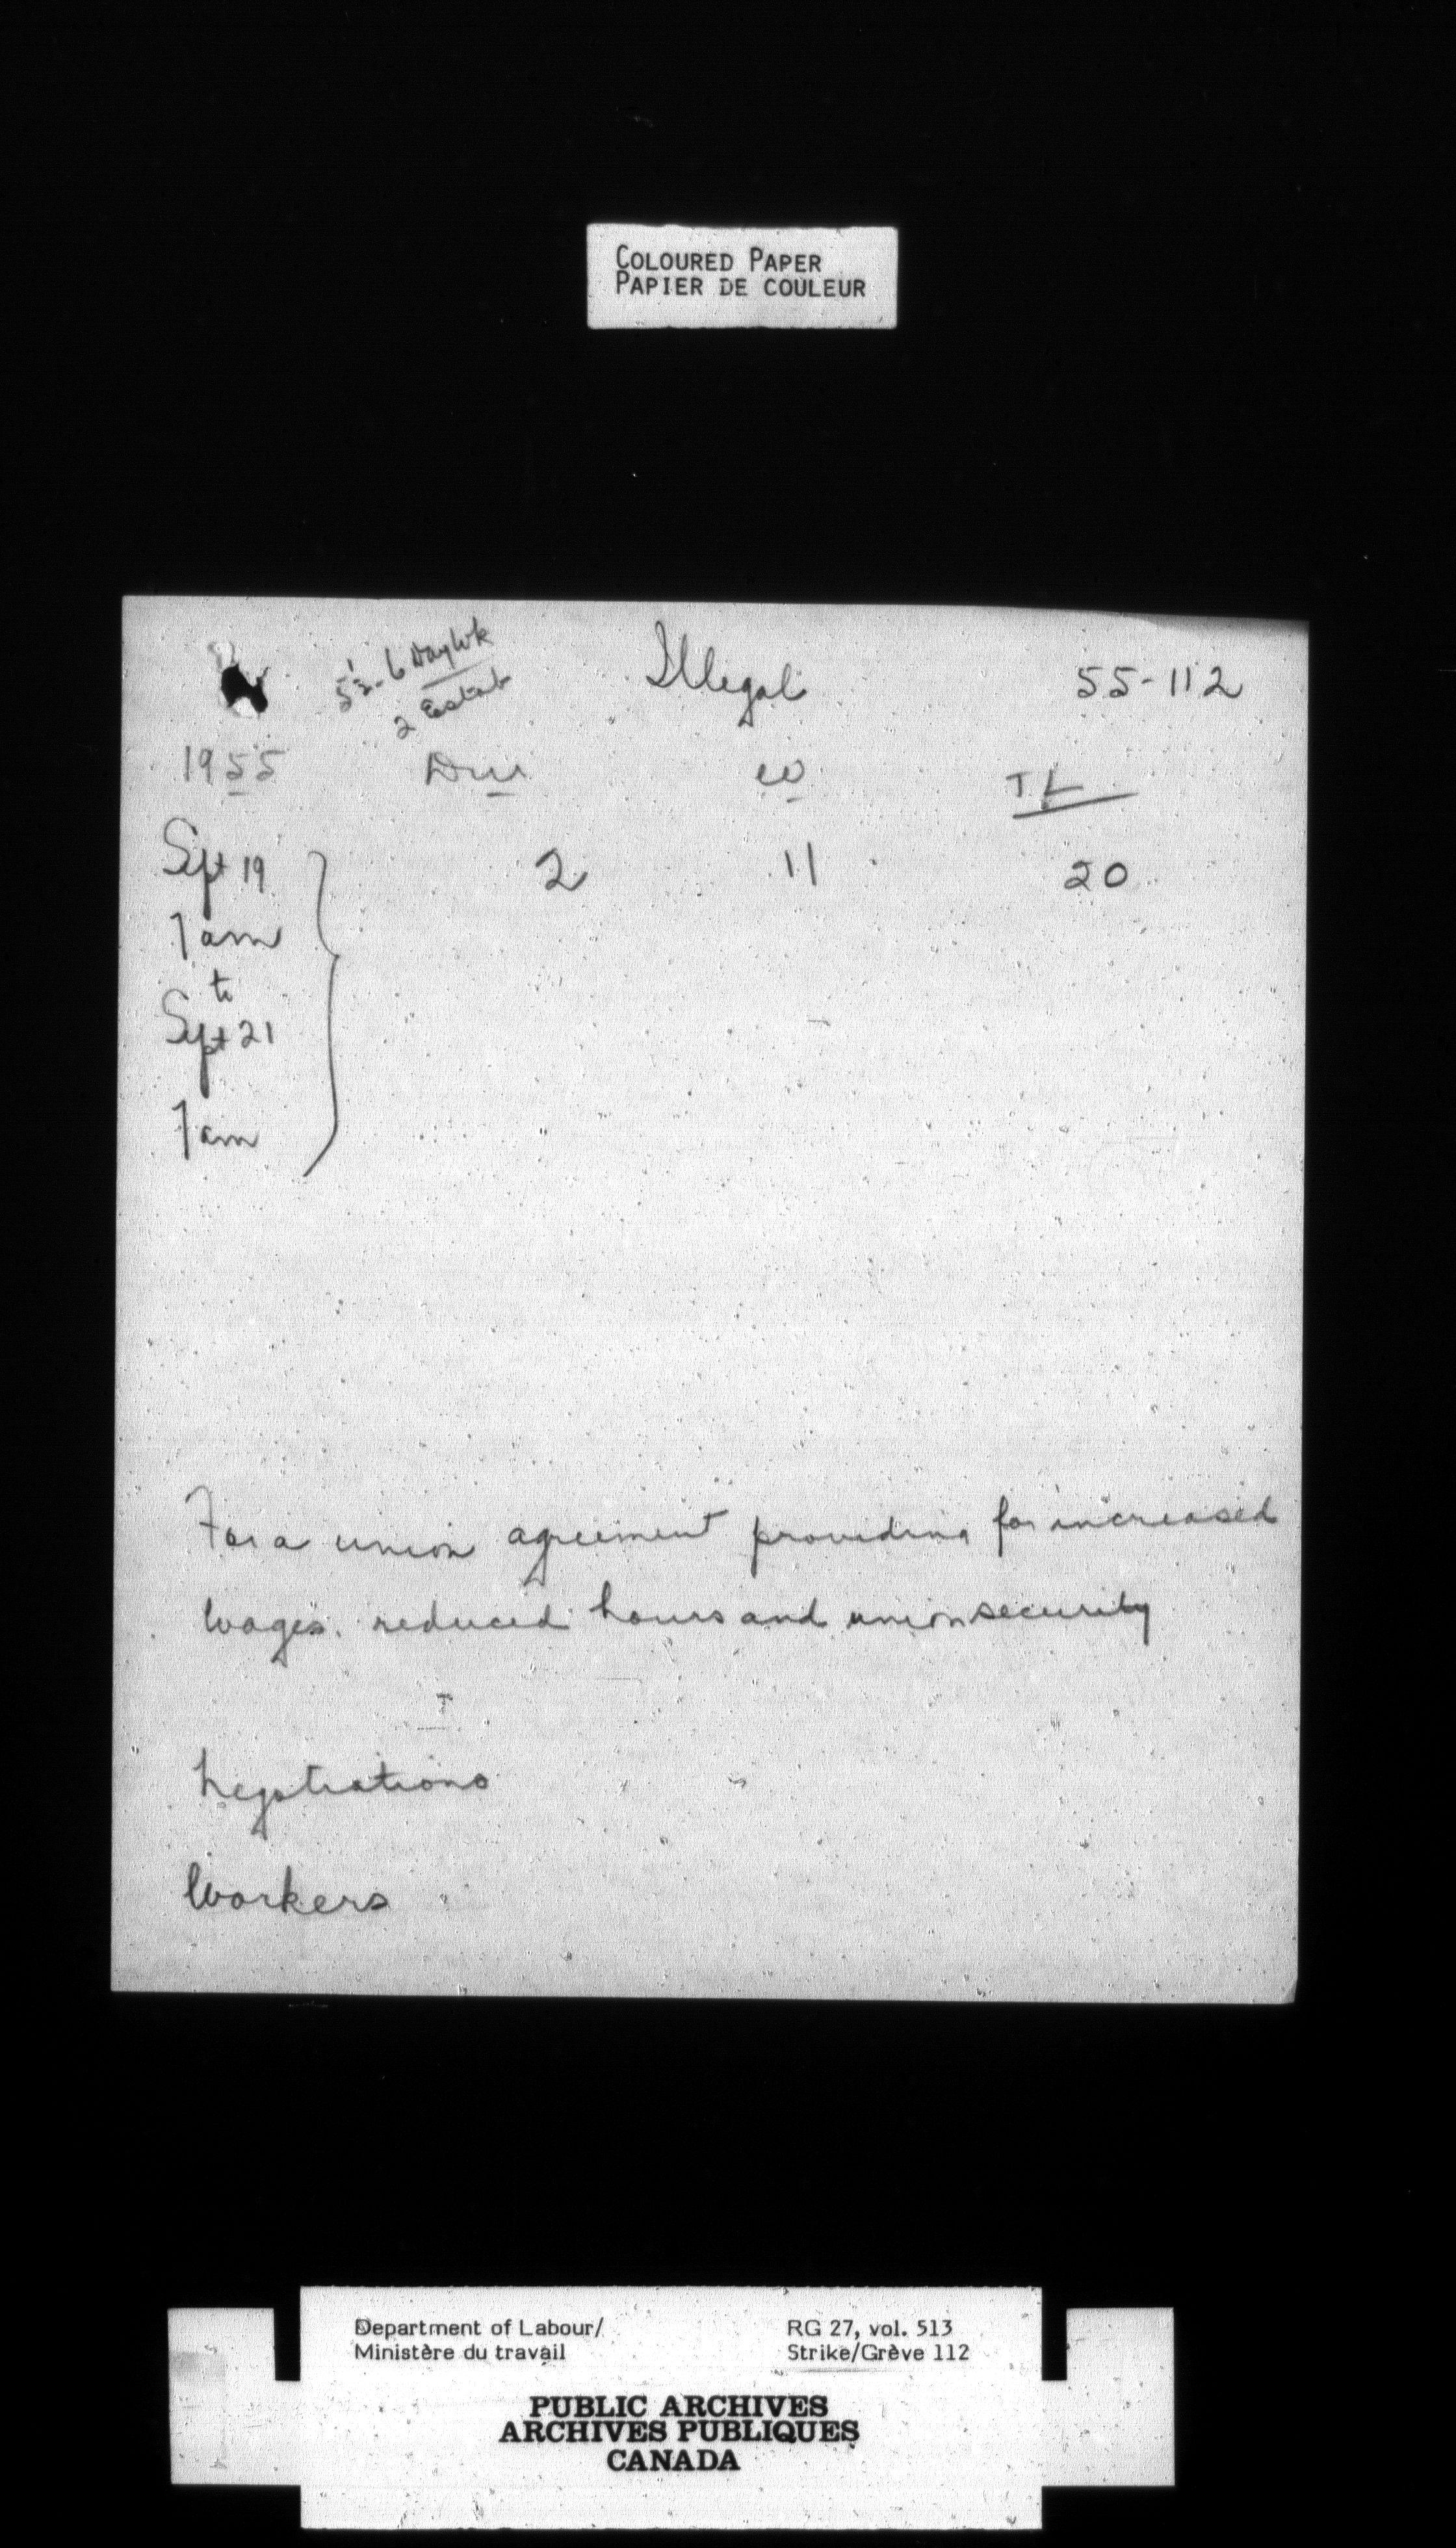 COLOURED PAPER
PAPIER DE COULEUR
5½-6 Day Wk
2 Estab
Illegal
55-112
1955 W T L
Sept 19 2 11 20
7am
to
Sept 21
7am
For a union agreement providing for increased
wages, reduced hours and union security
T
Negotiations
Workers
Department of Labour/
Ministère du travail
RG 27, vol. 513
Strike/Grève 112
PUBLIC ARCHIVES
ARCHIVES PUBLIQUES
CANADA